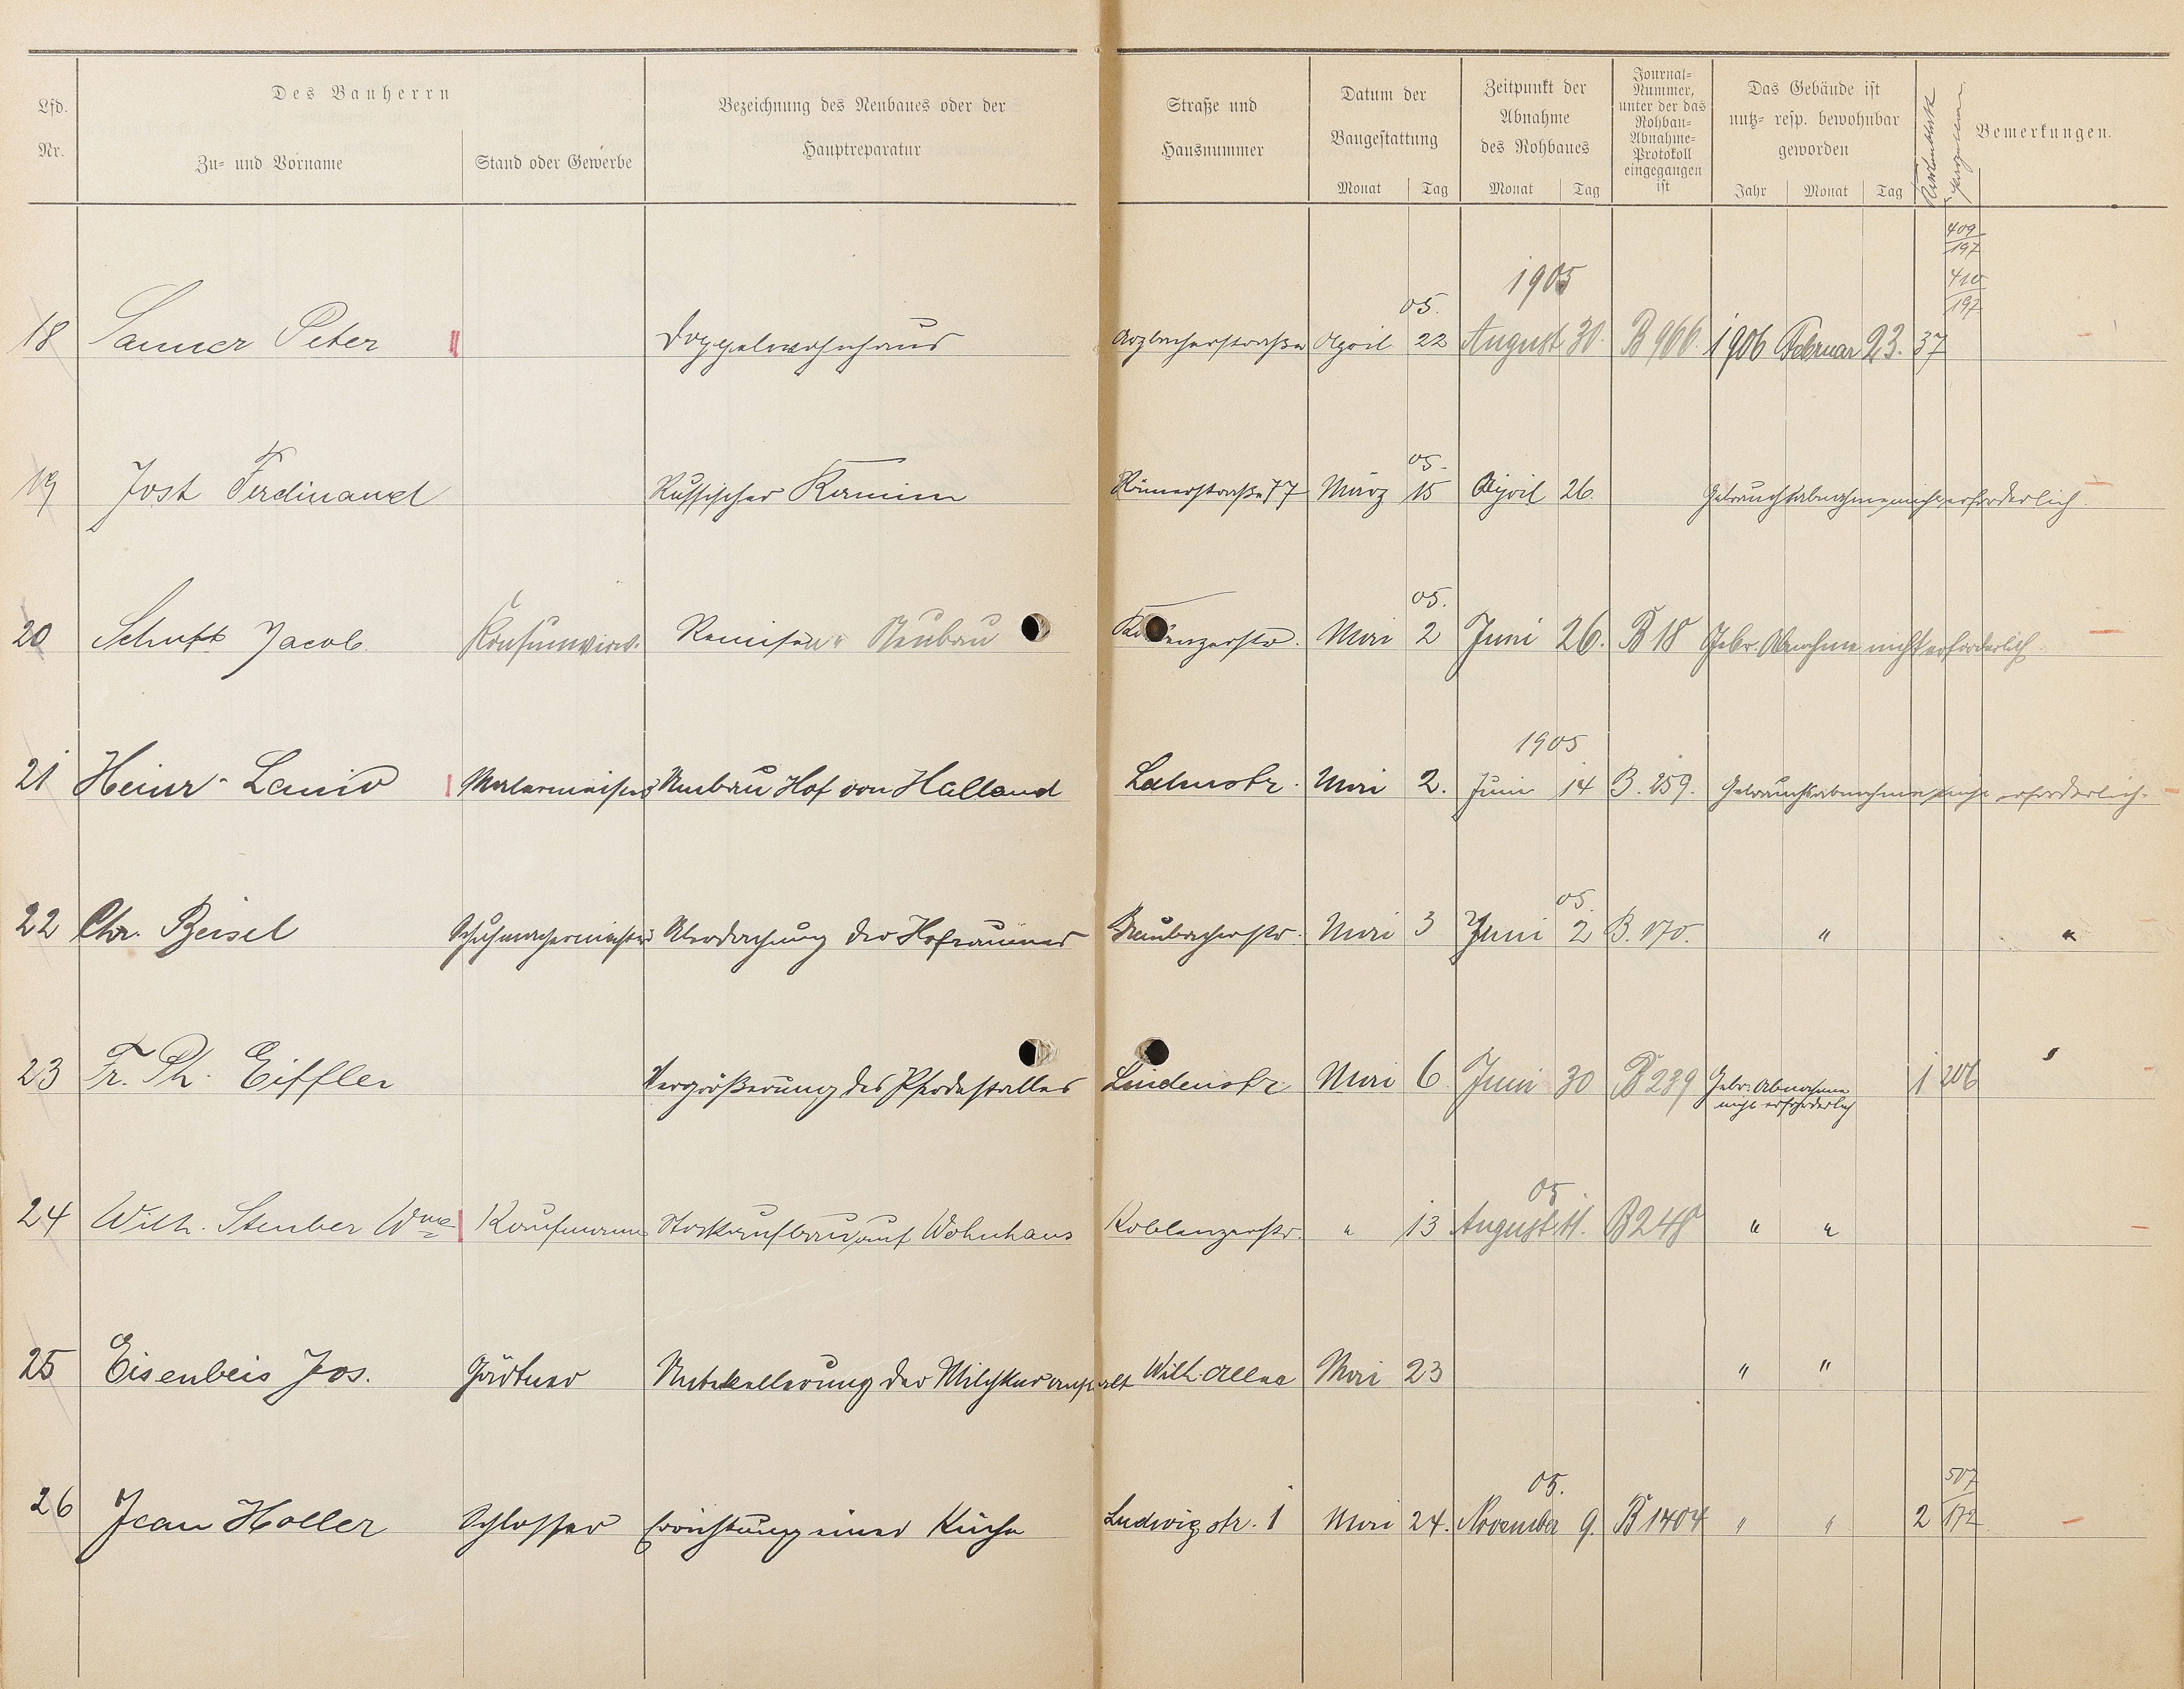 Lfd. Nr.
Des Bauherrn
Zu- und Vorname
Stand oder Gewerbe
Bezeichnung des Neubaues oder der Hauptreparatur
Straße und Hausnummer
Datum der Baugestattung
Monat Tag
Zeitpunkt der Abnahme des Rohbaues
Monat Tag
Journal-Nummer, unter der das Rohbau-Abnahme-Protokoll eingegangen ist
Das Gebäude ist nutz- resp. bewohnbar geworden
Jahr Monat Tag
Kartenblatt
Parzellen
Bemerkungen.
409
197
410
197
1905
05.
18 Sanner Peter Doppelwohnhaus Arzbacherstraße April 22 August 30. B 966. 1906 Februar 23. 37
05.
19 Jost Ferdinand Russischer Kamin Römerstraße 77 März 15 April 26. Gebrauchsabnahme nicht erforderlich.
05.
20 Schupt Jacob Konsumverw. Remisen " Neubau Mai 2 Juni 26. B 18 Gebr. Abnahme nicht erforderlich
1905
21 Heinr. Lanio Malermeister Umbau Hof von Holland Lahnstr. Mai 2. Juni 14 B. 259. Gebrauchsabnahme nicht erforderlich.
05.
22 Chr. Beisel Schuhmachermeister Überdachung des Hofraumes Braubacherstr. Mai 3 Juni 2 B. 170. " "
23 Fr. Ph. Eiffler Vergrößerung des Pferdestalles Lindenstr. Mai 6 Juni 30 B 239 Gebr. Abnahme nicht erforderlich 1 206
05
24 Wilh. Stenber Wwe Kaufmann Stockaufbau auf Wohnhaus Koblenzerstr. " 13 August 11. B 248 " "
25 Eisenbeis Jos. Gärtner Unterkellerung der Milchkuranstalt Wilh. Allee Mai 23 " "
05.
507
26 Jean Holler Schlosser Errichtung einer Küche Ludwigstr. 1 Mai 24. November 9. B 1404 " " 2 172